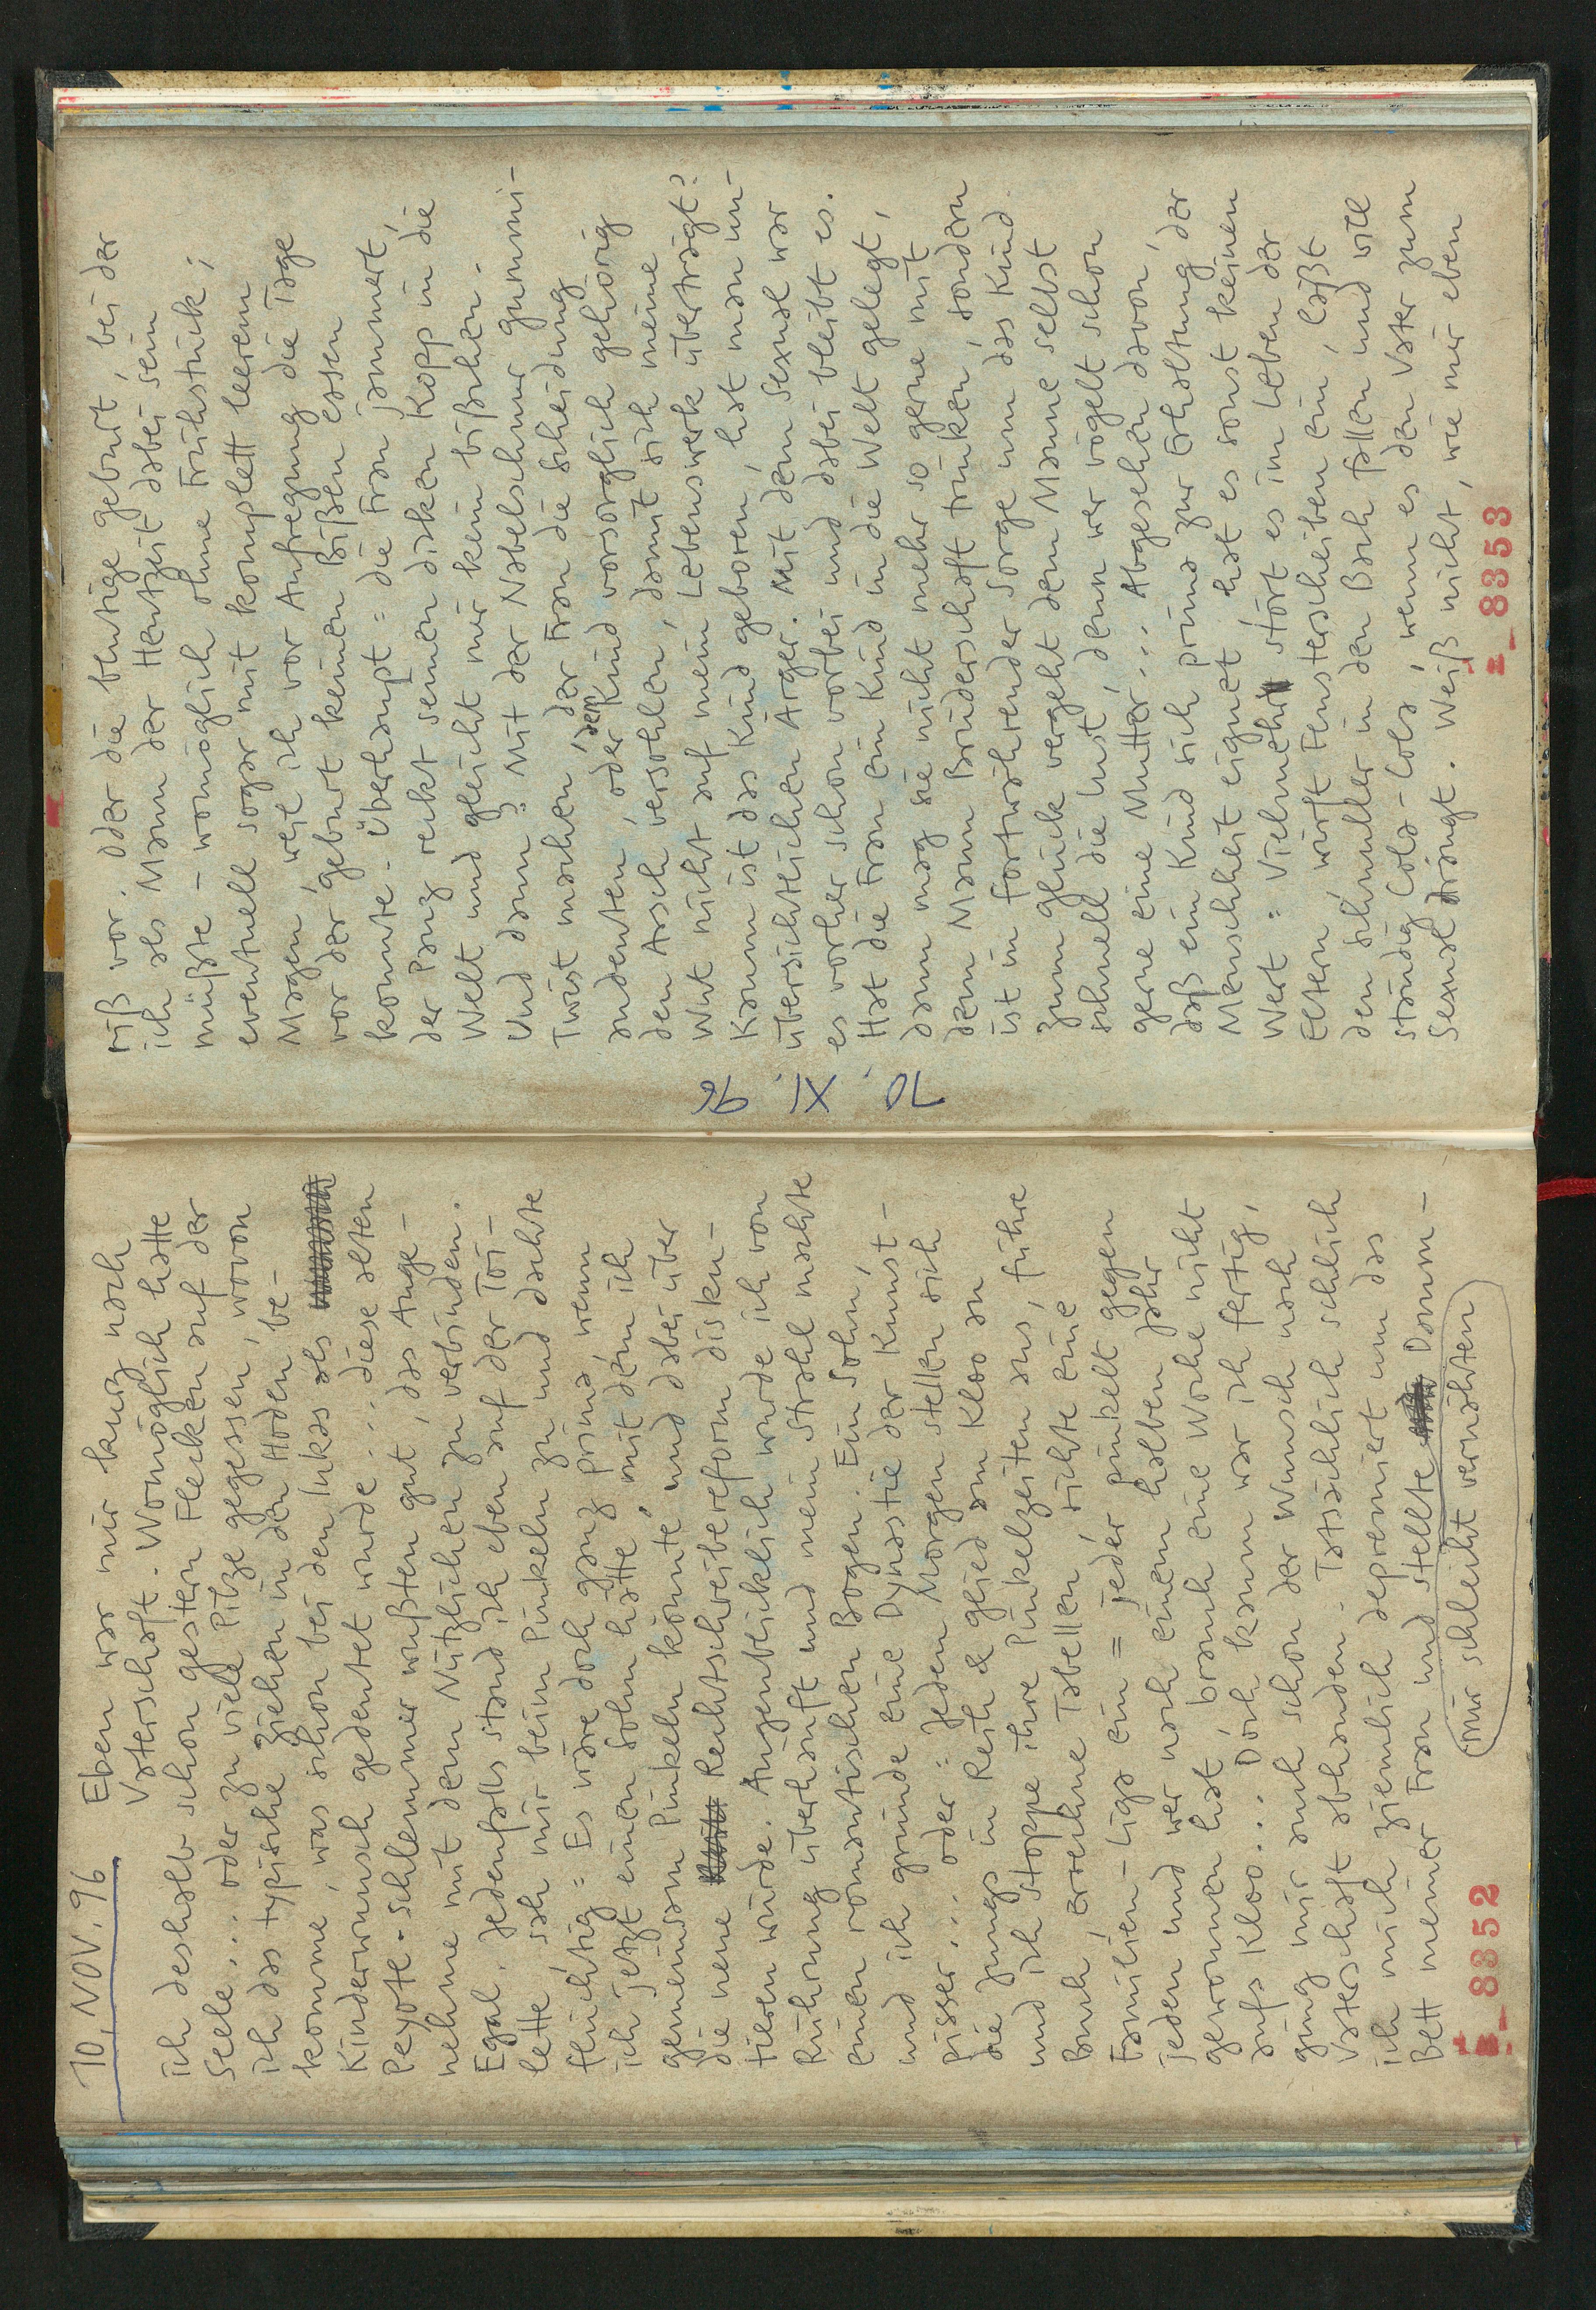 10. NOV. 96
Eben war mir kurz nach
Vaterschaft. Womöglich hatte
ich deshalb schon gestern Flecken auf der
Seele... oder zu viele Pilze gegessen, wovon
ich das typische Ziehen in den Hoden be-
komme, was schon bei den Inkas als
Kinderwunsch gedeutet wurde... diese alten
Peyote-schlemmer wußten gut, das Ange-
nehme mit dem Nützlichen zu verbinden.
Egal. Jedenfalls stand ich eben auf der Toi-
lette, sah mir beim Pinkeln zu und dachte
flüchtig: Es wäre doch ganz prima, wenn
ich jetzt einen Sohn hätte, mit dem ich
gemeinsam Pinkeln könnte, und dabei über
die neue Rechtschreibereform disku-
tieren würde. Augenblicklich wurde ich von
Rührung überhäuft und mein Strahl machte
einen romantischen Bogen. Ein Sohn,
und ich gründe eine Dynastie der Kunst-
pisser... oder: Jeden Morgen stellen sich
die Jungs in Reih & Glied am Kloo an
und ich stoppe ihre Pinkelzeiten aus, führe
Buch, errechne Tabellen, richte eine
Familien-Liga ein = jeder pinkelt gegen
jeden und wer nach einem halben Jahr
gewonnen hat, brauch eine Woche nicht
aufs Kloo... Doch kaum war ich fertig,
ging mir auch schon der Wunsch nach
Vaterschaft abhanden. Tatsächlich schlich
ich mich ziemlich deprimiert um das
Bett meiner Frau und stellte Damm-
(mir schlecht vernähten)
8352
10. XI. 96
riß vor. Oder die blutige Geburt, bei der
ich als Mann der Heutzeit dabei sein
müßte - womöglich ohne Frühstück;
eventuell sogar mit komplett leerem
Magen, weil ich vor Aufregung die Tage
vor der Geburt keinen Bißen essen
konnte. Überhaupt: die Frau jammert,
der Panz reckt seinen dicken Kopp in die
Welt und gleicht mir kein bißchen.
Und dann? Mit der Nabelschnur Gummi-
Twist machen, der Frau die Scheidung
andeuten, oder dem Kind vorsorglich gehörig
den Arsch versohlen, damit sich meine
Wut nicht auf mein Lebenswerk überträgt?
Kaum ist das Kind geboren, hat man un-
übersichtlichen Ärger. Mit dem Sexual war
es vorher schon vorbei und dabei bleibt es.
Hat die Frau ein Kind in die Welt gelegt,
dann mag sie nicht mehr so gerne mit
dem Mann Brüderschaft trinken, sondern
ist in fortwährender Sorge um das Kind.
Zum Glück vergeht dem Manne selbst
schnell die Lust, denn wer vögelt schon
gerne eine Mutter... Abgesehen davon,
daß ein Kind sich prima zur Erhaltung der
Menschheit eignet, hat es sonst keinen
Wert: Vielmehr stört es im Leben der
Eltern, wirft Fensterscheiben ein, läßt
den Schnuller in den Bach fallen und will
ständig Cola-Cola, wenn es den Vater zum
Sexual drängt. Weiß nicht, wie mir eben
8353